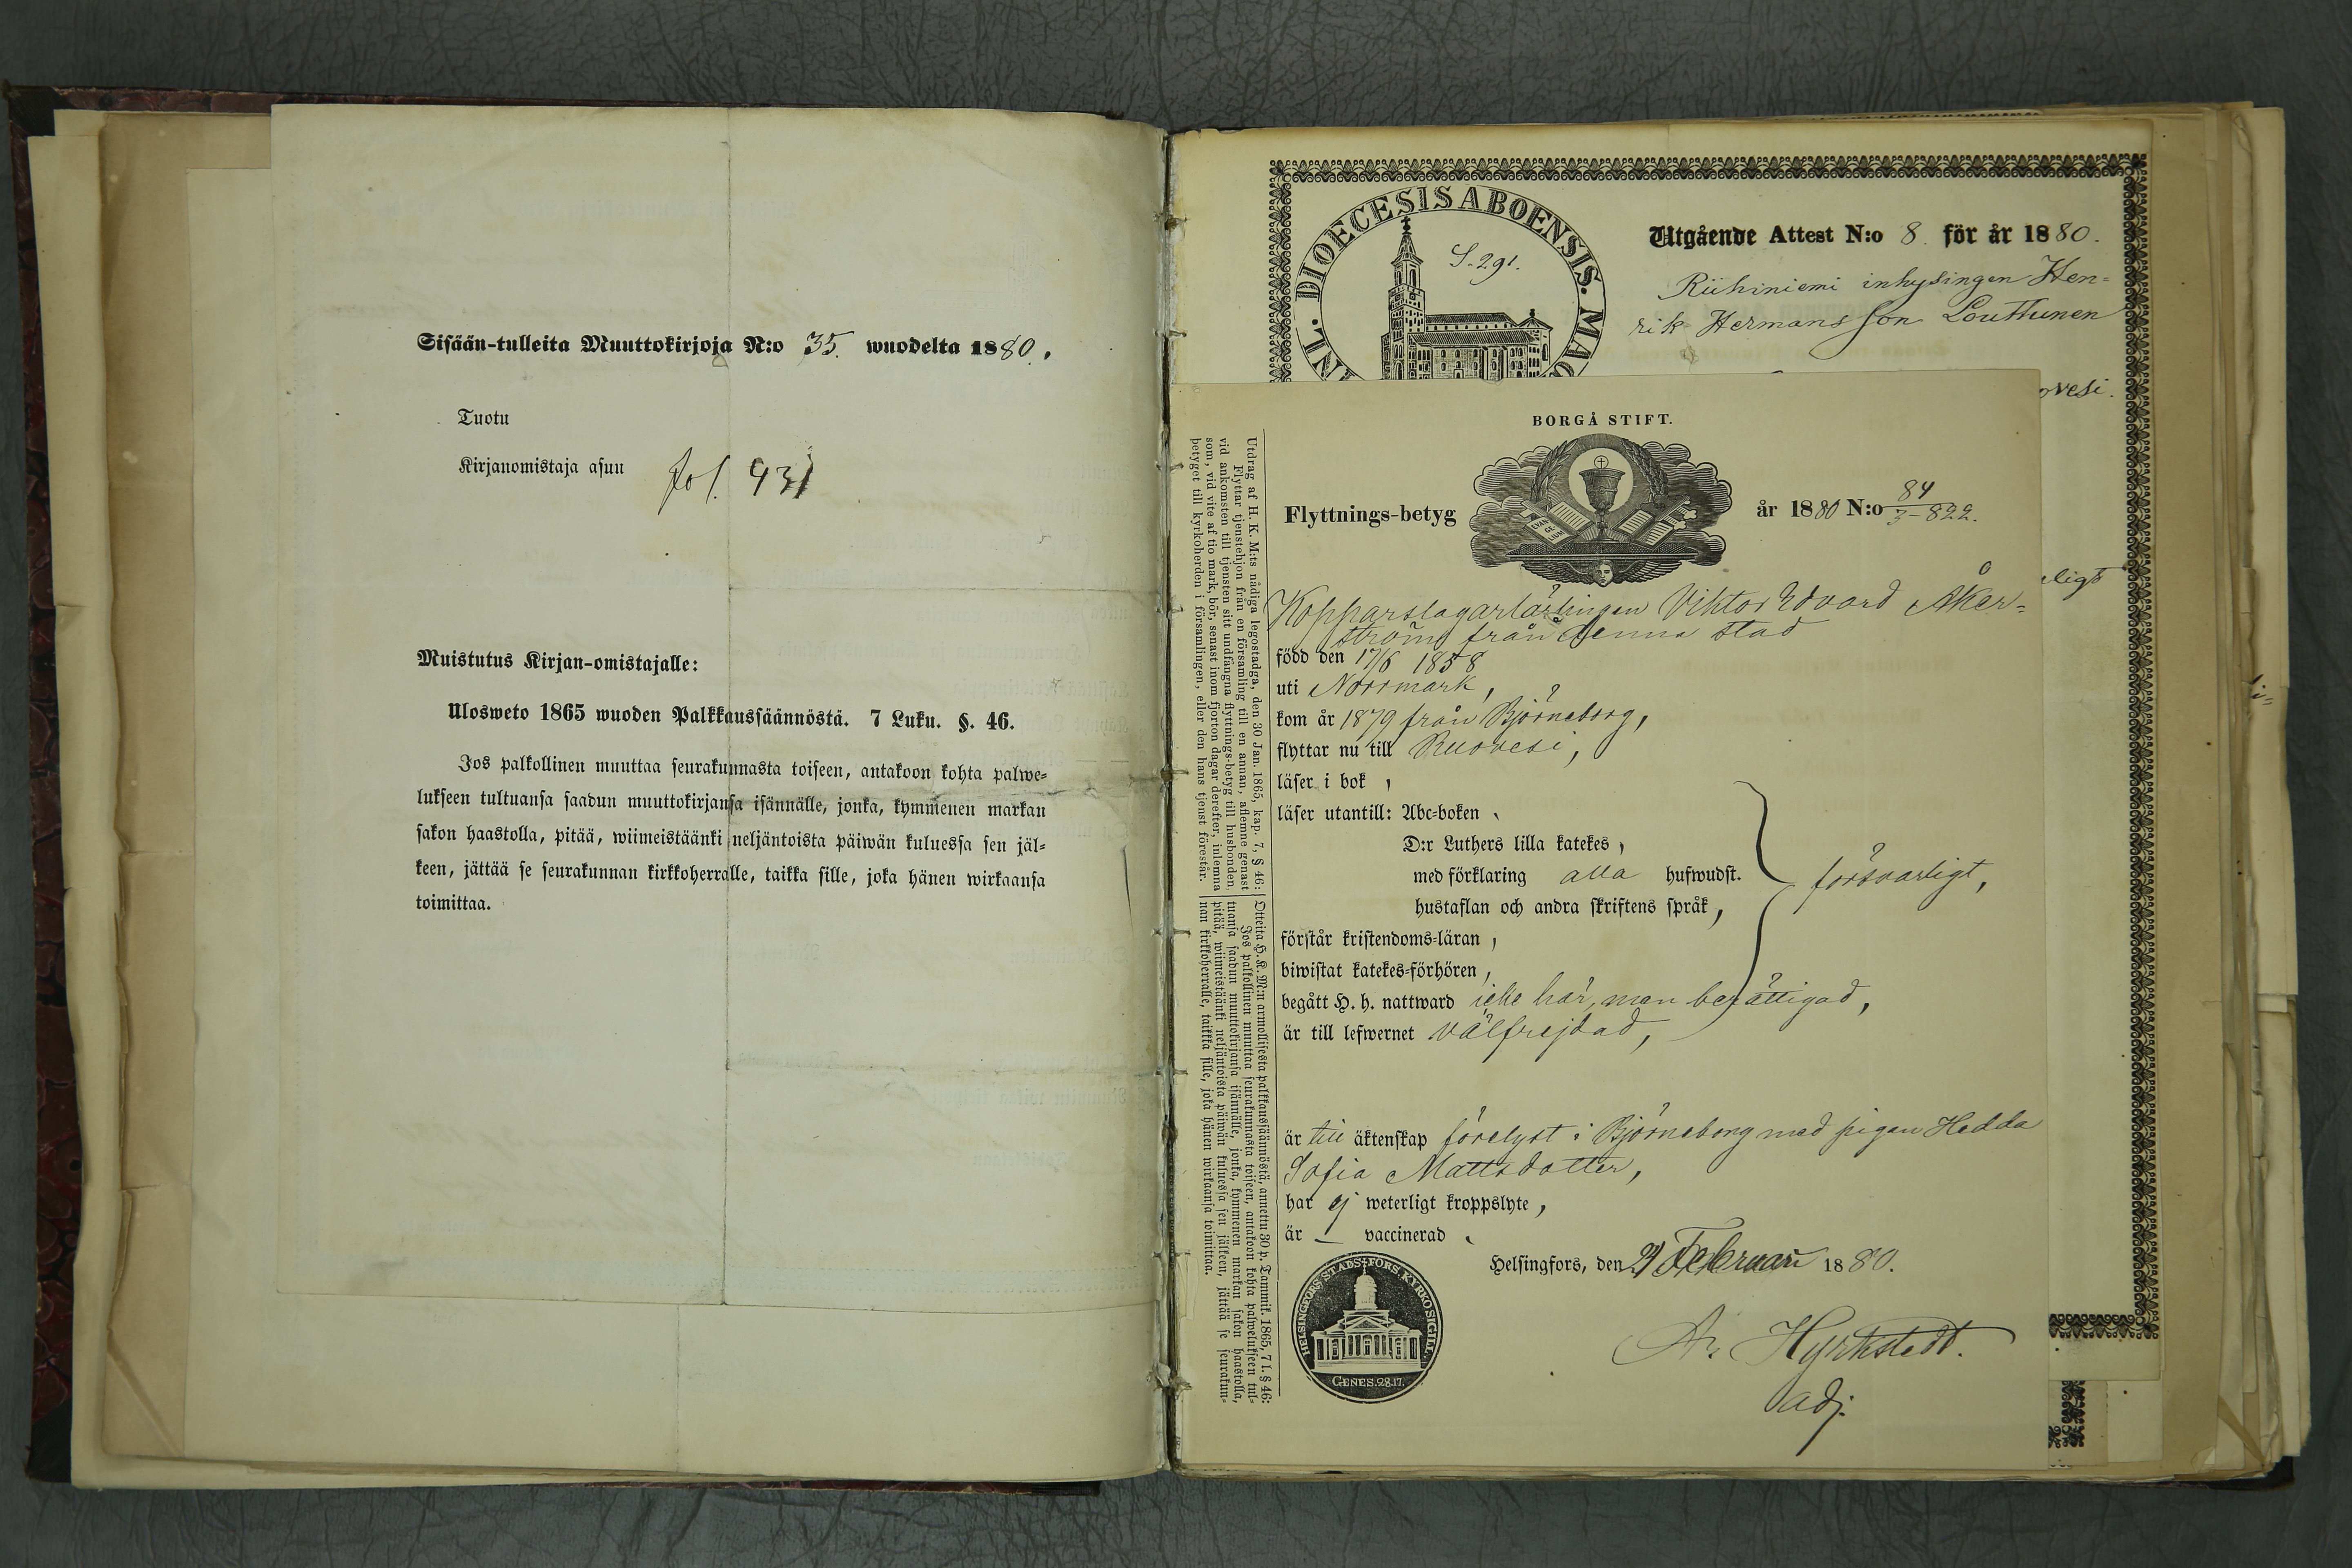 Sisään-tulleita Muuttokirjoja N:o 35. wuodelta 1880.
Tuotu
Kirjanomistaja asuu fol. 931
Muistutus Kirjan-omistajalle:
Ulosweto 1865 wuoden Palkkaussäännöstä. 7 Luku. §. 46.
Jos palkollinen muuttaa seurakunnasta toiseen, antakoon kohta palwe=
lukseen tultuansa saadun muuttokirjansa isännälle, jonka, kymmenen markan
sakon haastolla, pitää, wiimeistäänki neljäntoista päiwän kuluessa sen jäl=
keen, jättää se seurakunnan kirkkoherralle, taikka sille, joka hänen wirkaansa
toimittaa.
DIOECESIS ABOENSIS. MA
NL.
S. 291.
Utgående Attest N:o 8. för år 1880.
Riihiniemi inhysingen Hen=
rik Hermansson Louttunen
ovesi.
eligt
BORGÅ STIFT.
Flyttnings-betyg år 1880 N:o 84/3-822.
EVAN
GE
LIUM
Kopparslagarlärlingen Viktor Edvard Åker=
ström från denna stad
född den 17/6 1858
uti Norrmark,
kom år 1879 från Björneborg,
flyttar nu till Ruovesi,
läser i bok,
läser utantill: Abc=boken,
D:r Luthers lilla katekes,
med förklaring alla hufwudst.
hustaflan och andra skriftens språk,
försvarligt,
förstår kristendoms=läran,
biwistat katekes=förhören,
begått H. h. nattward icke här, men berättigad,
är till lefwernet välfrejdad,
är till äktenskap förelyst i Björneborg med pigan Hedda
Sofia Mattsdotter,
har ej weterligt kroppslyte,
är — vaccinerad.
Helsingfors, den 21 Februari 1880.
Hyrkstedt.
adj.
HELSINGFORS STADS FÖRS KYRKOSIGILL.
GENES.28.17.
Utdrag af H. K. M:ts nådiga legostadga, den 30 Jan. 1865, kap. 7, § 46:
Flyttar tjenstehjon från en församling till en annan, aflemne genast
vid ankomsten till tjensten sitt undfångna flyttnings-betyg till husbonden,
som, vid vite af tio mark, bör, senast inom fjorton dagar derefter, inlemna
betyget till kyrkoherden i församlingen, eller den hans tjenst förestår.
Otteita H. K. M:n armollisesta palkkaussäännöstä, annettu 30 p. Tammik. 1865, 7 l. § 46:
Jos palkollinen muuttaa seurakunnasta toiseen, antakoon kohta palwelukseen tul=
tuansa saadun muuttokirjansa isännälle, jonka, kymmenen markan sakon haastolla,
pitää, wiimeistäänki neljäntoista päiwän kuluessa sen jälkeen, jättää se seurakun=
nan kirkkoherralle, taikka sille, joka hänen wirkaansa toimittaa.